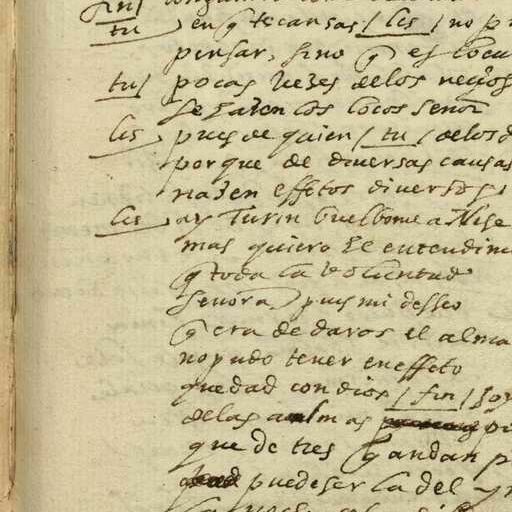 fin/
tu en q̃ te cansas / lis / no p
pensar, sino q̃ es locu
tu/ pocas vezes delos neçios
se hazen los locos señor
lis pues de quien / tu / delos d
porque de diversas causas
nazen effetos diversos
lis ay Turin buelbome a Nise
mas quiero el entendim
q̃ toda la voluntad
señora) pues mi desseo
q̃ era de daros el alma
no pudo tener en effeto
quedad con dios / fin / soy
delas almas po
que de tres q̃ andan p
puede ser la del